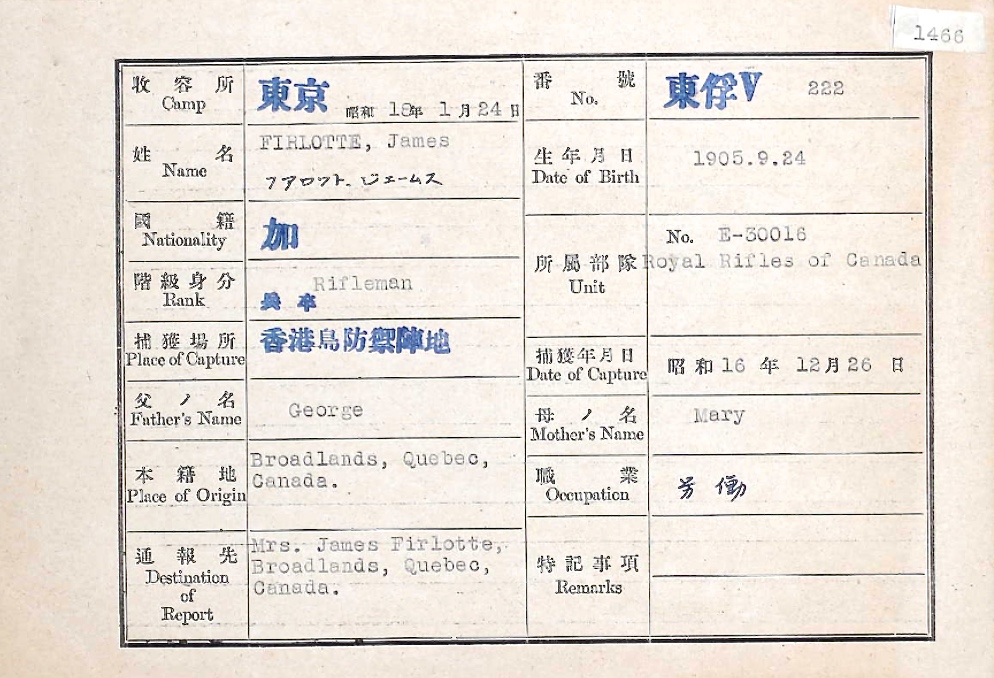 1466
收容所 東京 昭和 18年 1月24日
Camp
番號 東俘V 222
No.
姓名 FIRLOTTE, James
Name フアロツト.ジエームス
生年月日 1905.9.24
Date of Birth
國籍 加
Nationality
階級身分 Rifleman
Rank 兵卒
所屬部隊 No. E-30016
Unit Royal Rifles of Canada
捕獲場所 香港島防禦陣地
Place of Capture
捕獲年月日 昭和16年 12月26日
Date of Capture
父ノ名 George
Father's Name
母ノ名 Mary
Mother's Name
本籍地 Broadlands, Quebec,
Place of Origin Canada.
職業 労働
Occupation
通報先 Mrs. James Firlotte,
Destination Broadlands, Quebec,
of Canada.
Report
特記事項
Remarks